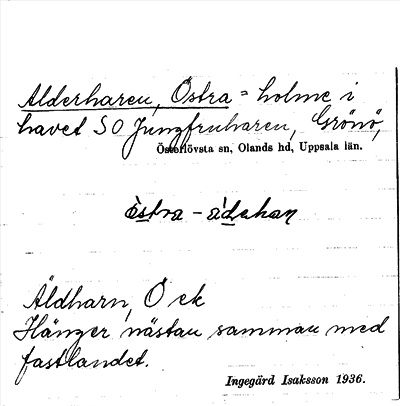 Alderharen, Östra = holme i
havet SO Jungfruharen, Grönö,
Österlövsta sn, Olands hd, Uppsala län.
östra - ådahan
Äldharn, O ek
Hänger nästan samman med
fastlandet.
Ingegärd Isaksson 1936.